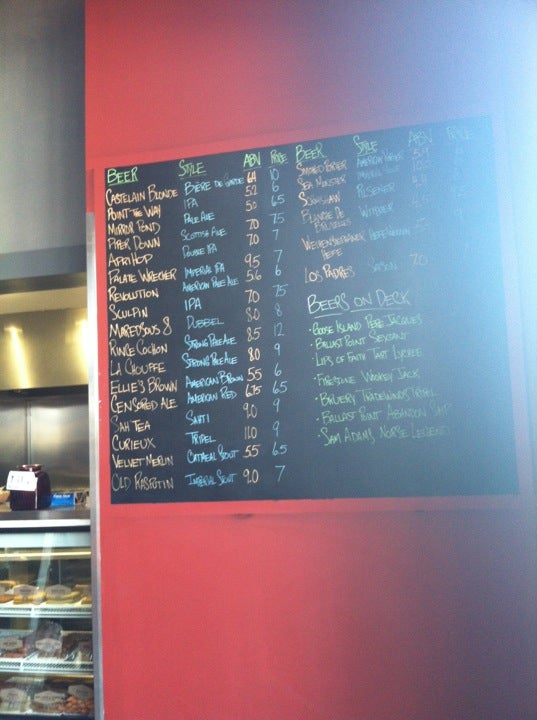 BEER STYLE ABV PRICE
CASTELAIN BLONDE BIÈRE DE GARDE 6.4 10
POINT THE WAY IPA 5.2 6
MIRROR POND PALE ALE 5.0 6.5
PIPER DOWN SCOTTISH ALE 7.5
APRIHOP DOUBLE IPA 7.0 7
PALATE WRECKER IMPERIAL IPA 9.5 7
REVOLUTION AMERICAN PALE ALE 5.6 6
SCULPIN IPA 7.0 7.5
MAREDSOUS 8 DUBBEL 8.0 8
RINCE COCHON STRONG PALE ALE 8.5 12
LA CHOUFFE STRONG PALE ALE 8.0 9
ELLIE'S BROWN AMERICAN BROWN 5.5 6
CENSORED ALE AMERICAN RED 6.75 6.5
SAH TEA SAHTI 9.0 9
CURIEUX TRIPEL 11.0 9
VELVET MERLIN OATMEAL STOUT 5.5 6.5
OLD RASPUTIN IMPERIAL STOUT 9.0 7
BEER STYLE ABV PRICE
SMOKED PORTER AMERICAN PORTER 5.9
SEA MONSTER
SCRIMSHAW PILSENER
BLANCHE DE
BRUXELLES WITBIER
WEIHENSTEPHANER HEFEWEIZEN
HEFE
LOS PADRES SAISON 7.0
BEERS ON DECK
· GOOSE ISLAND PERE JACQUES
· BALLAST POINT SEXTANT
· LIPS OF FAITH TART LYCHEE
· FIRESTONE WOOKEY JACK
· BRUERY TRADEWINDS TRIPEL
· BALLAST POINT ABANDON SHIP
· SAM ADAMS NORSE LEGEND